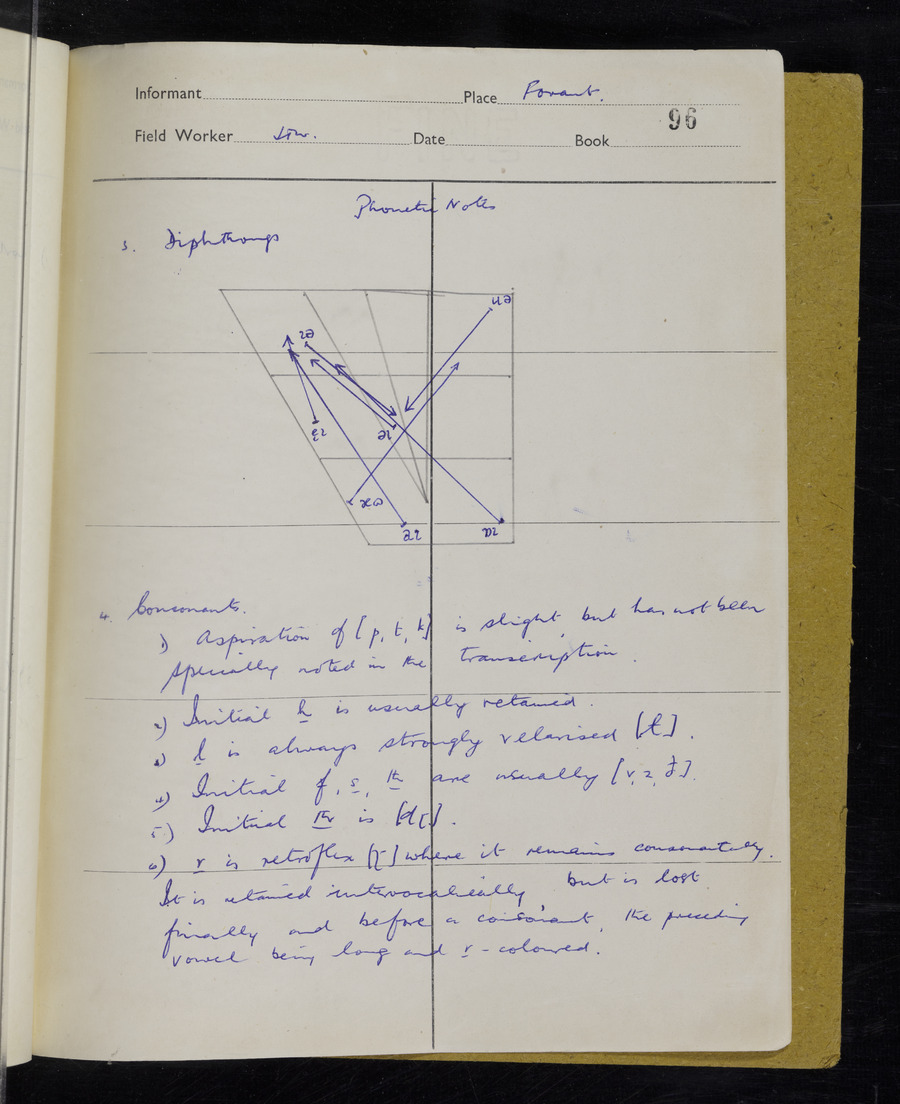 Informant Place Fovant.
96
Field Worker Date Book
Phonetic Notes
3. Diphthongs
uə
ɪə
ɛɪ
əɪ
æʊ
aɪ
ɒɪ
4. Consonants.
1) Aspiration of [p, t, k] is slight, but has not been
specially noted in the transcription.
2) Initial h is usually retained.
3) l is always strongly velarised [ɫ].
4) Initial f, s, th are usually [v, z, ð].
5) Initial thr is [dɽ].
6) r is retroflex [ɽ] where it remains consonantally.
It is retained intervocalically but is lost
finally and before a consonant, the preceding
vowel being long and r-coloured.